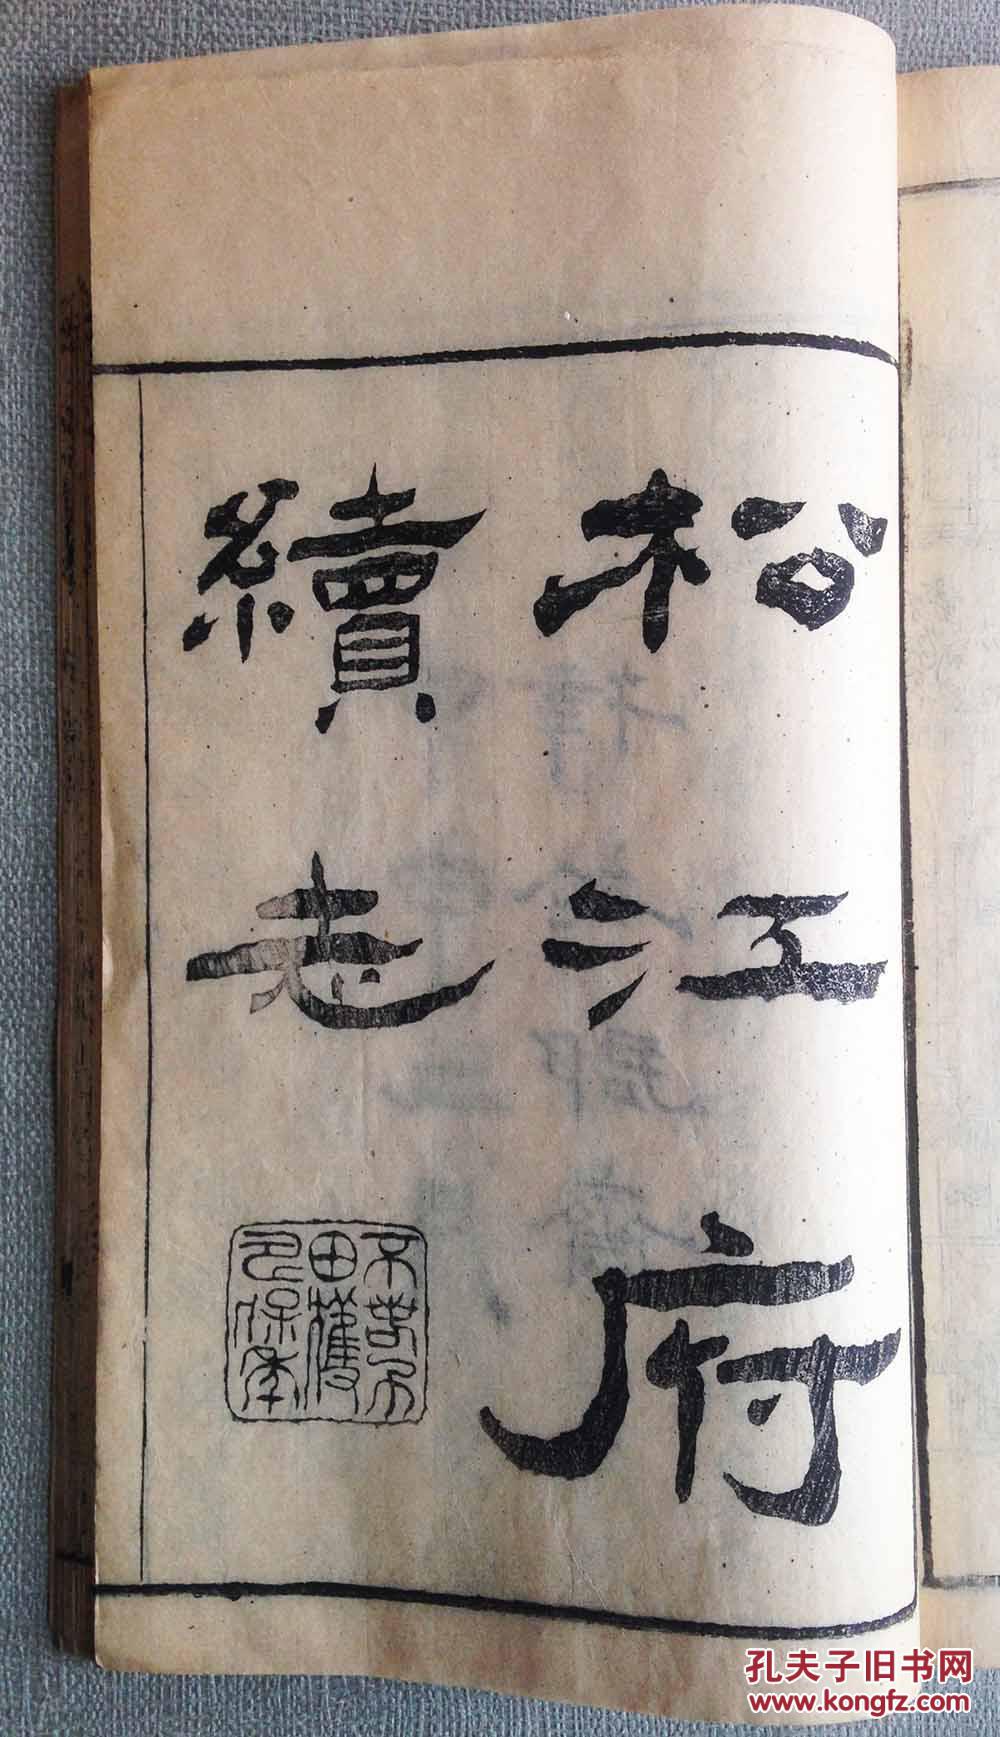 松江府
續志
孔夫子旧书网
www.kongfz.com